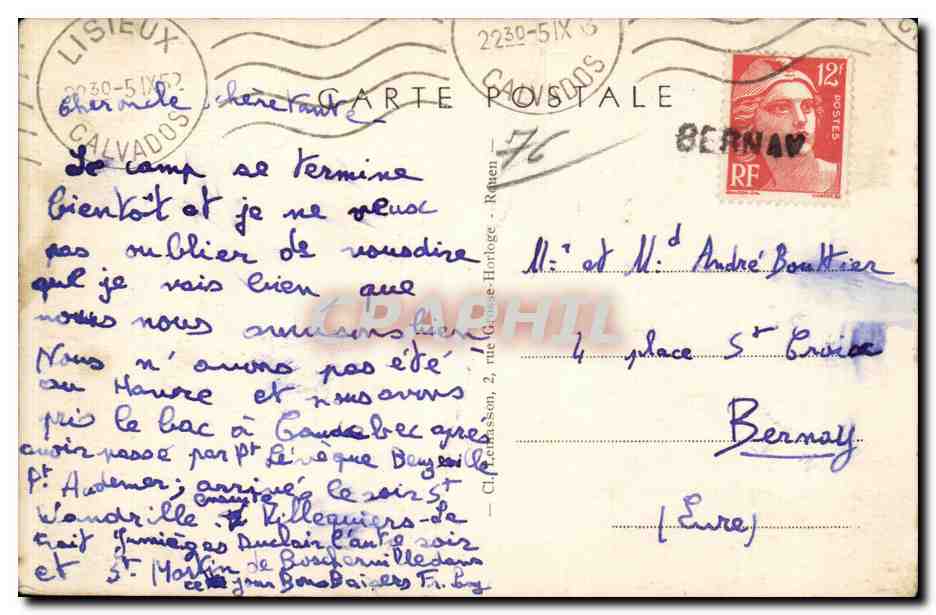 LISIEUX
2230-5 IX 52
CALVADOS
2230-5 IX
CALVADOS
12F
POSTES
RF
BERNAY
CARTE POSTALE
76
Cher oncle chère tante
Le camp se termine
bientôt et je ne veux
pas oublier de vous dire
que je vais bien que
nous nous amusons bien!
Nous n'avons pas été
au Havre et nous avons
pris le bac à Caudebec apres
avoir passé par Pt Lévèque Beuzeville
Pt. Audemer; arrivé le soir St
Wandrille ensuite Villequiers-Le
trait Jumièges Duclair l'autre soir
et St Martin de Boscherville dans
cette jour Bons Baisers
Cl. Lemasson, 2, rue Grosse-Horloge - Rouen
Mr et Md André Bouttier
4 place St Croix
Bernay
(Eure)
CPAPHIL